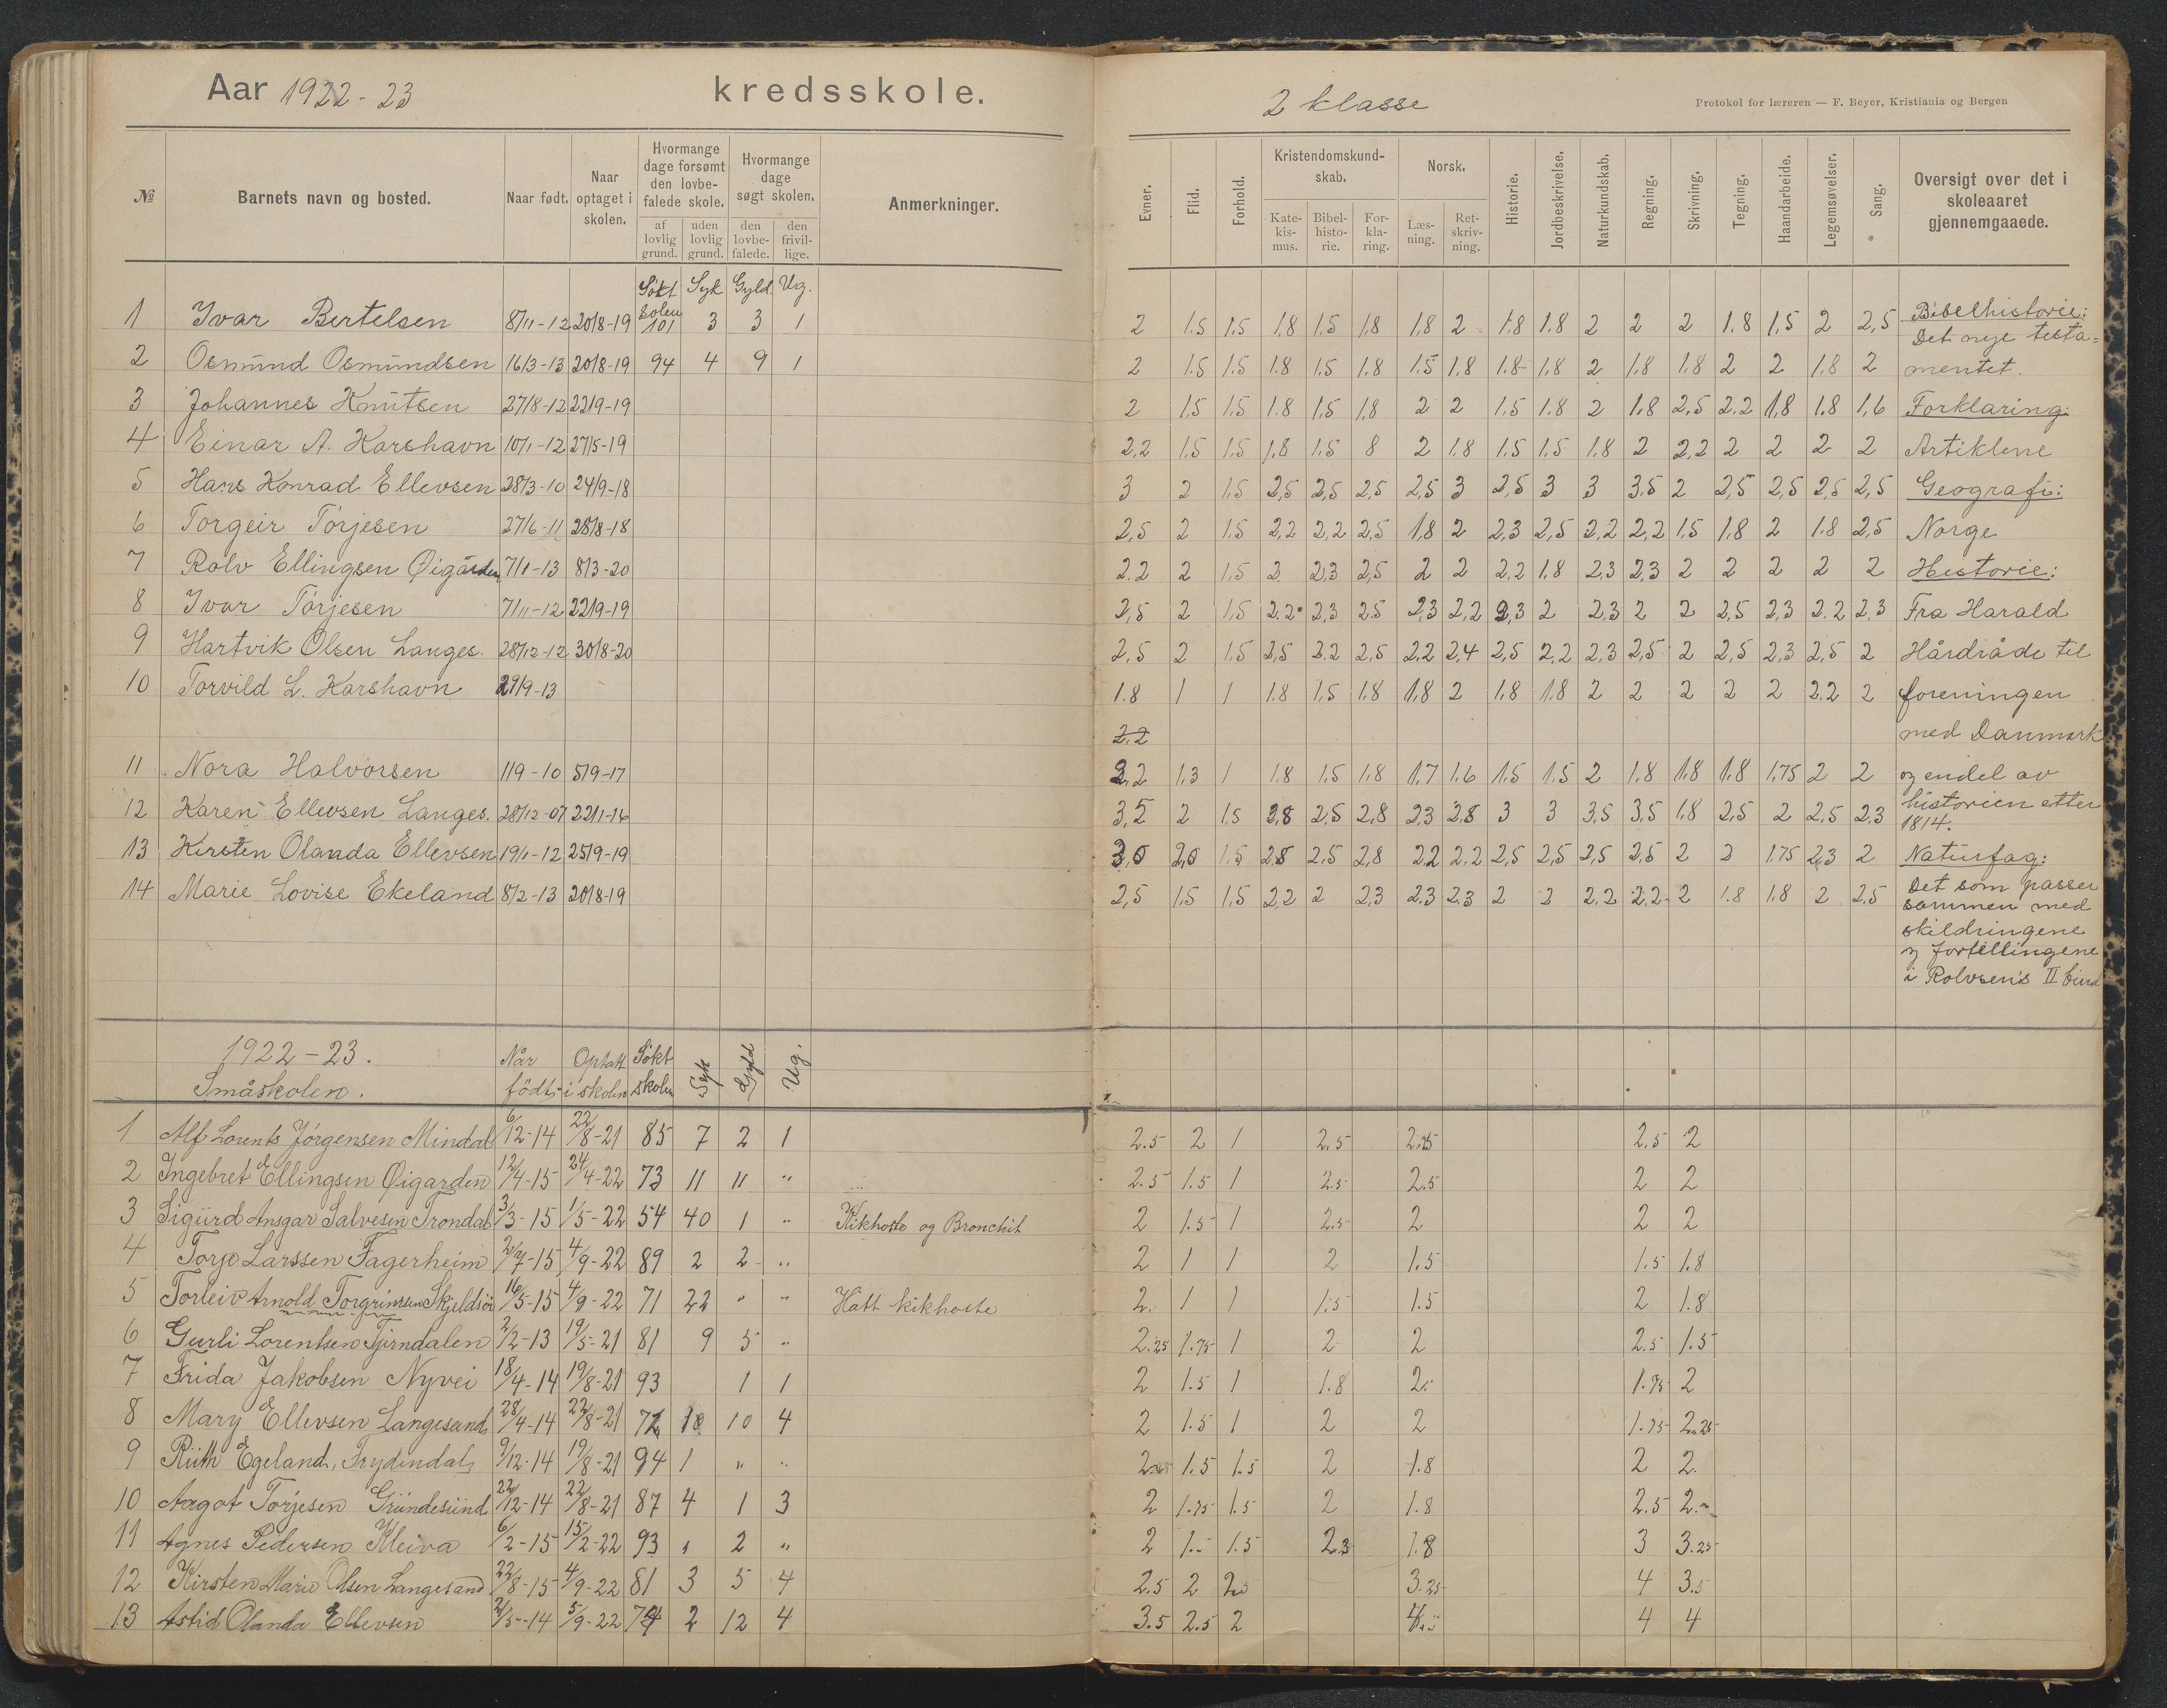 Aar 1922-23 kredsskole. 2 klasse Protokol for læreren — F. Beyer, Kristiania og Bergen
№ Barnets navn og bosted. Naar født. Naar optaget i skolen. Hvormange dage forsømt den lovbefalede skole. af lovlig grund. uden lovlig grund. Hvormange dage søgt skolen. den lovbefalede. den frivillige. Anmerkninger.
Evner. Flid. Forhold. Kristendomskundskab. Katekismus. Bibelhistorie. Forklaring. Norsk. Læsning. Retskrivning. Historie. Jordbeskrivelse. Naturkundskab. Regning. Skrivning. Tegning. Haandarbeide. Legemsøvelser. Sang. Oversigt over det i skoleaaret gjennemgaaede.
Søkt Syk Gyld. Ug.
1 Ivar Bertelsen 8/11-12 20/8-19 101 3 3 1 2 1.5 1.5 1.8 1.5 1.8 1.8 2 1.8 1.8 2 2 2 1.8 1,5 2 2,5 Bibelhistorie: Det nye testa=
2 Osmund Osmundsen 16/3-13 20/8-19 94 4 9 1 2 1.5 1.5 1.8 1.5 1.8 1.5 1.8 1.8 1.8 2 1.8 1.8 2 2 1.8 2 mentet.
3 Johannes Knutsen 27/8-12 22/9-19 2 1.5 1.5 1.8 1,5 1,8 2 2 1.5 1.8 2 1.8 2,5 2.2 1,8 1.8 1,6 Forklaring:
4 Einar A. Karshavn 10/1-12 27/5-19 2,2 1.5 1.5 1,8 1.5 8 2 1.8 1.5 1.5 1.8 2 2,2 2 2 2 2 Artiklene
5 Hans Konrad Ellevsen 28/3-10 24/9-18 3 2 1,5 2,5 2,5 2,5 2,5 3 2,5 3 3 3.5 2 2,5 2,5 2,5 2,5 Geografi:
6 Torgeir Törjesen 27/6-11 28/8-18 2,5 2 1.5 2,2 2,2 2,5 1,8 2 2,3 2,5 2,2 2,2 1,5 1.8 2 1.8 2,5 Norge
7 Rolv Ellingsen Øigården 7/1-13 8/3-20 2.2 2 1,5 2 2,3 2,5 2 2 2,2 1,8 2,3 2,3 2 2 2 2 2 Historie:
8 Ivar Törjesen 7/11-12 22/9-19 2,5 2 1,5 2.2 2,3 2.5 2,3 2,2 2,3 2 2,3 2 2 2,5 2,3 2,2 2,3 Fra Harald
9 Hartvik Olsen Langes. 28/12-12 30/8-20 2,5 2 1.5 2,5 2.2 2,5 2,2 2,4 2,5 2,2 2,3 2,5 2 2,5 2,3 2,5 2 Hårdråde til
10 Torvild L. Karshavn 29/9-13 1.8 1 1 1.8 1.5 1.8 1.8 2 1.8 1.8 2 2 2 2 2 2.2 2 foreningen
2.2 med Danmark
11 Nora Halvorsen 1/9-10 5/9-17 2.2 1.3 1 1.8 1.5 1.8 1.7 1.6 1.5 1.5 2 1.8 1.8 1.8 1.75 2 2 og endel av
12 Karen Ellevsen Langes. 28/12-07 22/1-16 3,5 2 1.5 2,8 2,5 2,8 2,3 2,8 3 3 3,5 3,5 1.8 2,5 2 2,5 2,3 historien etter 1814.
13 Kirsten Olanda Ellevsen 19/1-12 25/9-19 3,0 2,0 1.5 2.8 2,5 2,8 2,2 2.2 2,5 2,5 2,5 2,5 2 2 1.75 2,3 2 Naturfag:
14 Marie Lovise Ekeland 8/2-13 20/8-19 2,5 1.5 1,5 2,2 2 2,3 2,3 2.3 2 2 2.2 2.2 2 1.8 1.8 2 2,5 Det som passer
sammen med
skildringene
og fortellingene
i Rolvsen's II bind
1922-23. Når Optatt Søkt Syk Gyld Ug.
Småskolen. födt. i skolen skolen
1 Alf Lorents Jørgensen Mindal 6/12-14 22/8-21 85 7 2 1 2.5 2 1 2.5 2.25 2.5 2
2 Ingebret Ellingsen Øigarden 12/4-15 24/4-22 73 11 11 " 2.5 1.5 1 2.5 2.5 2 2
3 Sigurd Ansgar Salvesen Trondal 3/3-15 1/5-22 54 40 1 " Kikhoste og Bronchit 2 1.5 1 2.5 2 2 2
4 Torje Larssen Fagerheim 2/7-15 4/9-22 89 2 2 " 2 1 1 2 1.5 1.5 1.8
5 Torleiv Arnold Torgrimsen Skjeldsö 16/5-15 4/9-22 71 22 " " Hatt kikhoste 2 1 1 1.5 1.5 2 1.8
6 Gurli Lorentsen Tjirndalen 2/2-13 19/5-21 81 9 5 " 2.25 1.75 1 2 2 2.5 1.5
7 Frida Jakobsen Nyvei 18/4-14 19/8-21 93 1 1 2 1.5 1 1.8 2 1.75 2
8 Mary Ellevsen Langesand 28/4-14 22/8-21 72 10 10 4 2 1.5 1 2 2 1.75 2.25
9 Ruth Egeland, Frydendal 9/12-14 19/8-21 94 1 " " 1.5 1.5 2 1.8 2 2
10 Aagot Torjesen Grundesund 22/12-14 22/8-21 87 4 1 3 2 1.75 1.5 2 1.8 2.5 2
11 Agnes Pedersen Kleiva 6/2-15 15/2-22 93 1 2 " 2 1.5 2.3 1.8 3 3.25
12 Kirsten Marie Olsen Langesand 22/8-15 4/9-22 81 3 5 4 2.5 2 2.5 3.25 4 3.5
13 Astid Olanda Ellevsen 2/5-14 5/9-22 74 2 12 4 3.5 2.5 2 4 4 4